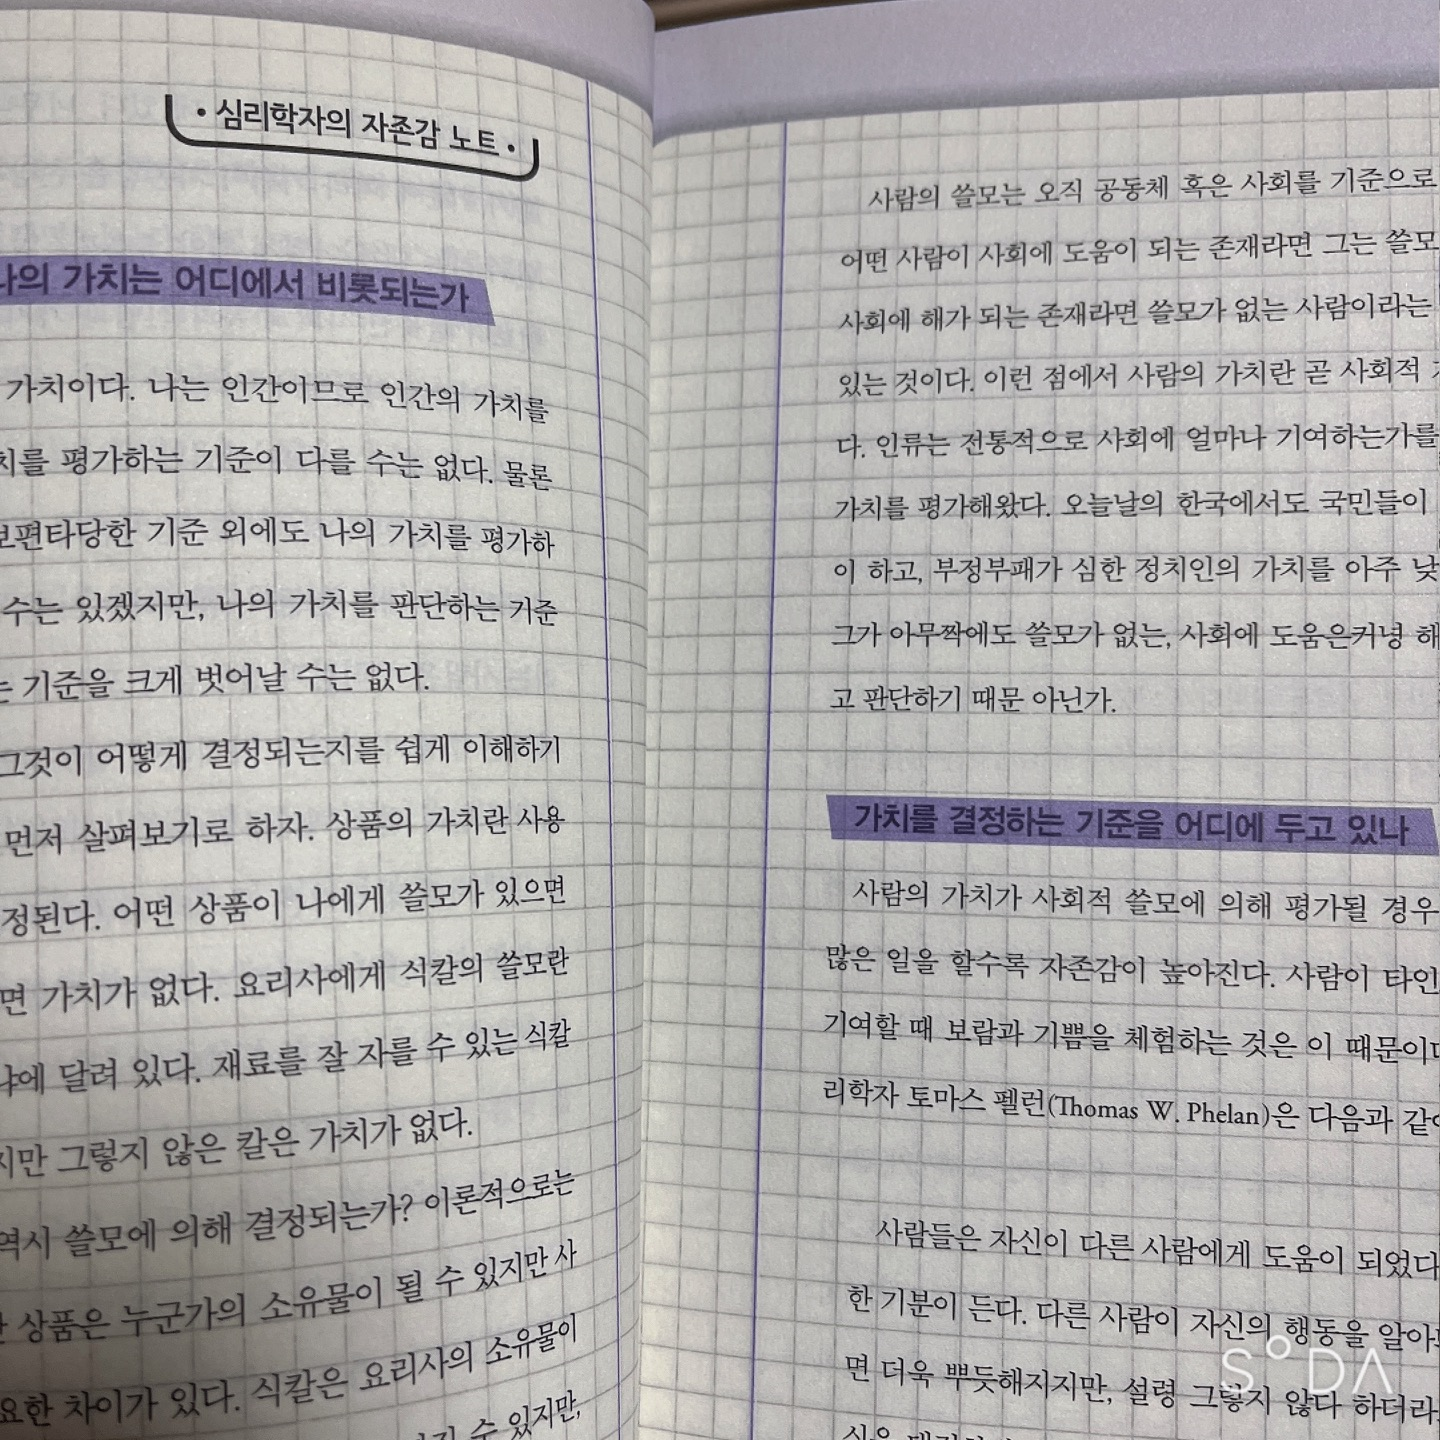 • 심리학자의 자존감 노트 •
나의 가치는 어디에서 비롯되는가
가치이다. 나는 인간이므로 인간의 가치를
치를 평가하는 기준이 다를 수는 없다. 물론
보편타당한 기준 외에도 나의 가치를 평가하
수는 있겠지만, 나의 가치를 판단하는 기준
는 기준을 크게 벗어날 수는 없다.
그것이 어떻게 결정되는지를 쉽게 이해하기
먼저 살펴보기로 하자. 상품의 가치란 사용
정된다. 어떤 상품이 나에게 쓸모가 있으면
면 가치가 없다. 요리사에게 식칼의 쓸모란
냐에 달려 있다. 재료를 잘 자를 수 있는 식칼
지만 그렇지 않은 칼은 가치가 없다.
역시 쓸모에 의해 결정되는가? 이론적으로는
상품은 누군가의 소유물이 될 수 있지만 사
요한 차이가 있다. 식칼은 요리사의 소유물이
수 있지만,
사람의 쓸모는 오직 공동체 혹은 사회를 기준으로
어떤 사람이 사회에 도움이 되는 존재라면 그는 쓸모
사회에 해가 되는 존재라면 쓸모가 없는 사람이라는
있는 것이다. 이런 점에서 사람의 가치란 곧 사회적
다. 인류는 전통적으로 사회에 얼마나 기여하는가를
가치를 평가해왔다. 오늘날의 한국에서도 국민들이
이 하고, 부정부패가 심한 정치인의 가치를 아주 낮
그가 아무짝에도 쓸모가 없는, 사회에 도움은커녕 해
고 판단하기 때문 아닌가.
가치를 결정하는 기준을 어디에 두고 있나
사람의 가치가 사회적 쓸모에 의해 평가될 경우
많은 일을 할수록 자존감이 높아진다. 사람이 타인
기여할 때 보람과 기쁨을 체험하는 것은 이 때문이다
리학자 토마스 펠런(Thomas W. Phelan)은 다음과 같이
사람들은 자신이 다른 사람에게 도움이 되었다
한 기분이 든다. 다른 사람이 자신의 행동을 알아
면 더욱 뿌듯해지지만, 설령 그렇지 않다 하더라
SODA